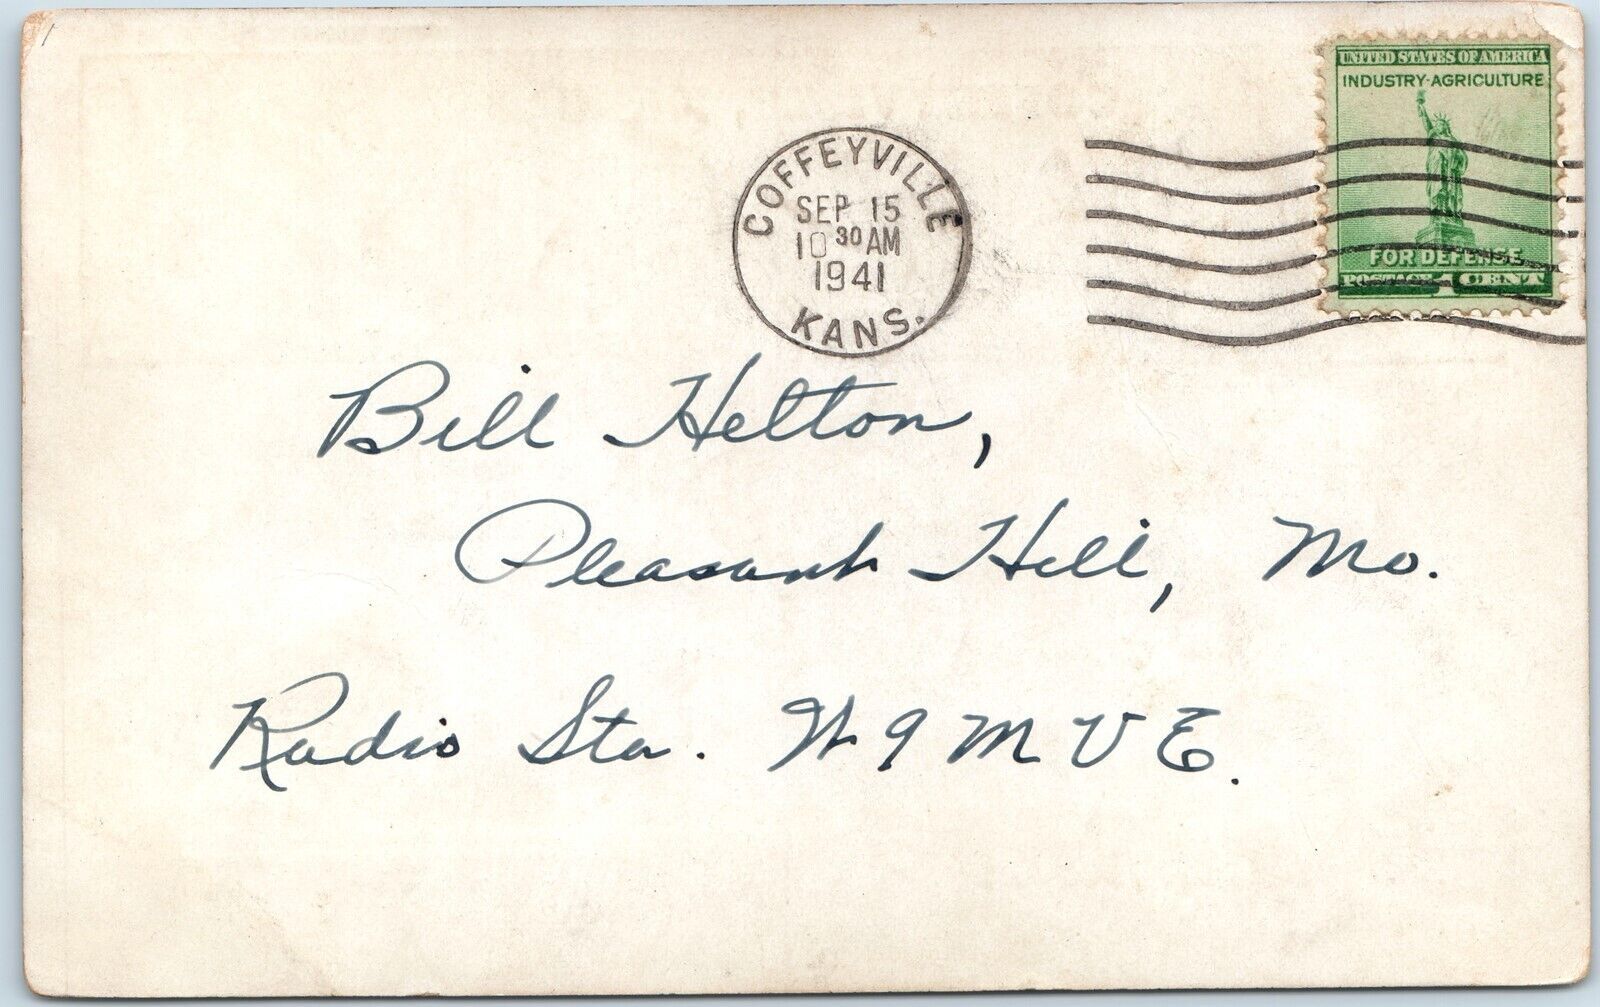 UNITED STATES OF AMERICA
INDUSTRY-AGRICULTURE
FOR DEFENSE
POSTAGE 1 CENT
COFFEYVILLE
SEP 15
10 30 AM
1941
KANS.
Bill Helton,
Pleasant Hill, Mo.
Radio Sta. W9MVE.